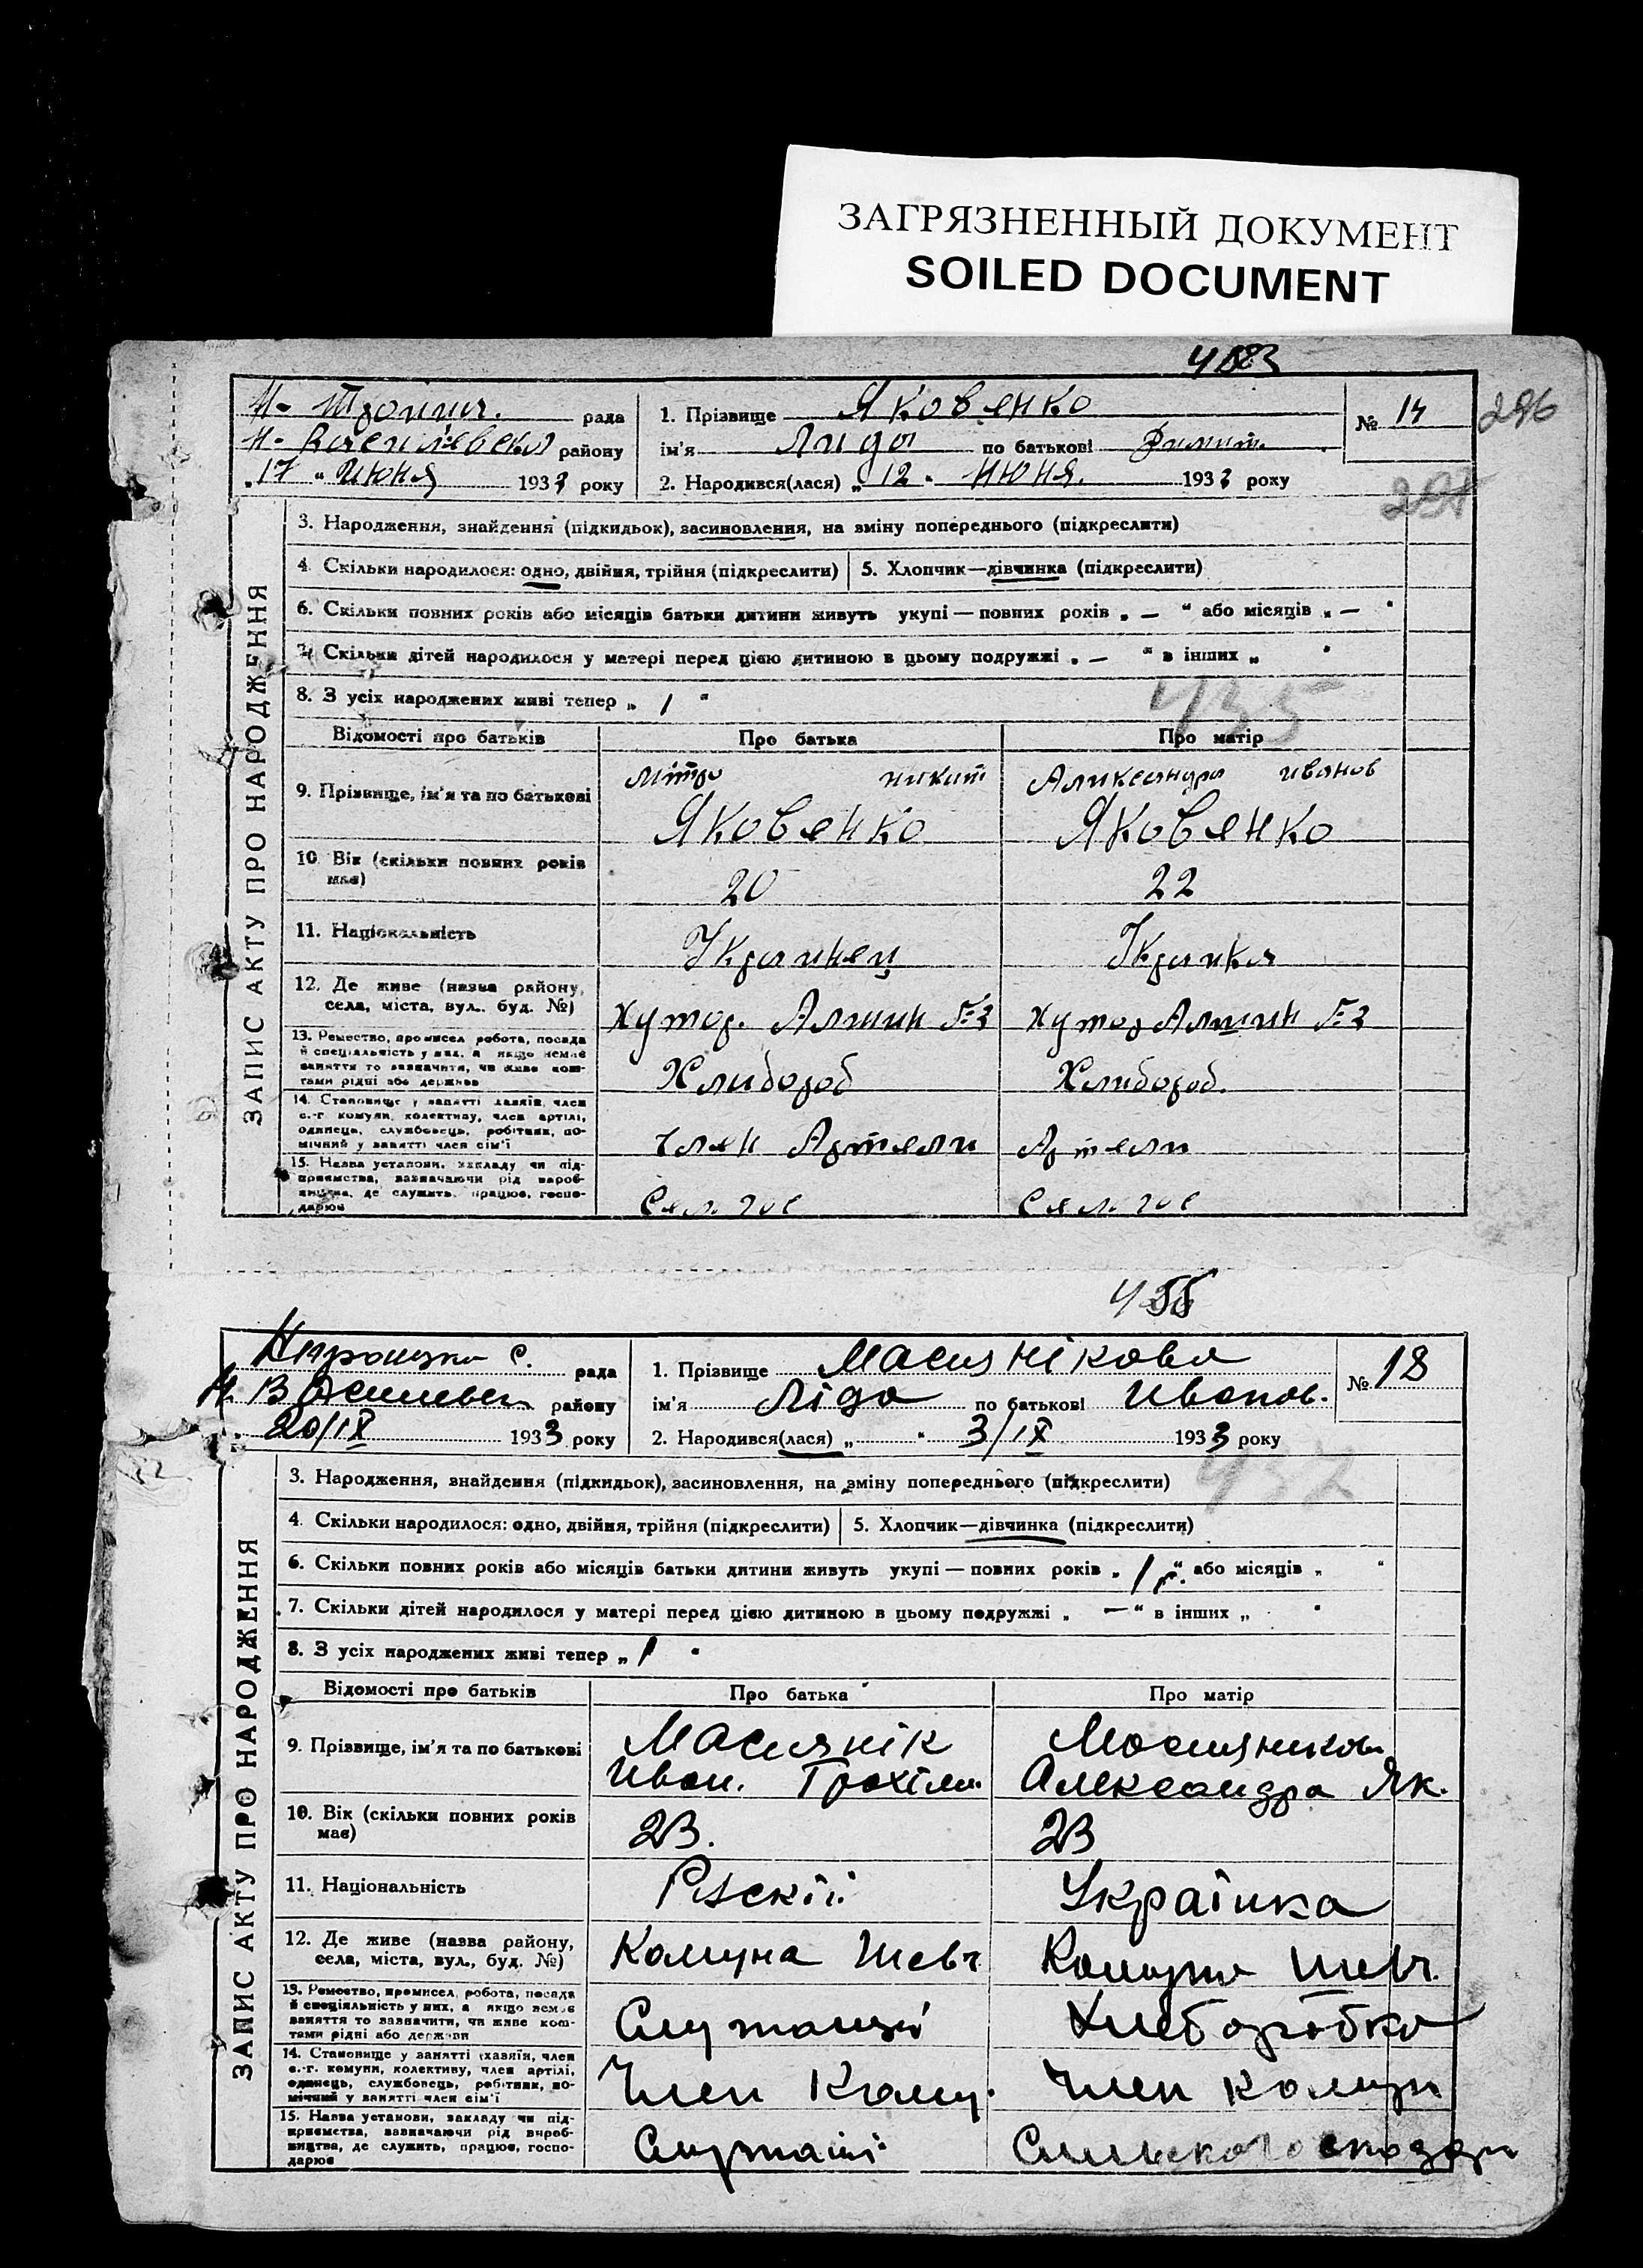 ЗАГРЯЗНЕННЫЙ ДОКУМЕНТ
SOILED DOCUMENT
296
рада
району
„17 “ Июня 1933 року
1. Прізвище Яковенко
ім'я Лида по батькові
2. Народився(лася) „ 12 “ Июня. 1933 року
№ 14
ЗАПИС АКТУ ПРО НАРОДЖЕННЯ
3. Народження, знайдення (підкидьок), засиновлення, на зміну попереднього (підкреслити)
4. Скільки народилося: одно, двійня, трійня (підкреслити)
5. Хлопчик—дівчинка (підкреслити)
6. Скільки повних років або місяців батьки дитини живуть укупі — повних років „ — “ або місяців „ — “
7. Скільки дітей народилося у матері перед цією дитиною в цьому подружжі „ — “ в інших „ “
8. З усіх народжених живі тепер „ 1 “
435
Відомості про батьків
Про батька
Про матір
9. Прізвище, ім'я та по батькові
Митро никит
Яковенко
Александра иванов
Яковенко
10. Вік (скільки повних років має)
20
22
11. Національність
Украинец
Украинка
12. Де живе (назва району, села, міста, вул., буд. №)
Хутор.
Хутор
13. Ремество, промисел робота, посада й спеціальність у них, а якщо немає заняття то зазначити, чи живе коштами рідні або держави
Хлибороб
Хлибороб.
14. Становище у занятті хазяїн, член с.-г. комуни, колективу, член артілі, одинець, службовець, робітник, помічний у занятті член сім'ї
Член Артели
Артели
15. Назва установи, закладу чи підприємства, зазначаючи рід виробництва, де служить, працює, господарює
Сел. гос
Сел. гос
455
рада
району
20/IX 1933 року
1. Прізвище Маслянікова
ім'я Ліда по батькові Иванов.
2. Народився(лася) „ “ 3/IX 1933 року
№ 18
437
ЗАПИС АКТУ ПРО НАРОДЖЕННЯ
3. Народження, знайдення (підкидьок), засиновлення, на зміну попереднього (підкреслити)
4. Скільки народилося: одно, двійня, трійня (підкреслити)
5. Хлопчик—дівчинка (підкреслити)
6. Скільки повних років або місяців батьки дитини живуть укупі — повних років „ 1 г. “ або місяців „ “
7. Скільки дітей народилося у матері перед цією дитиною в цьому подружжі „ — “ в інших „ “
8. З усіх народжених живі тепер „ 1 “
Відомості про батьків
Про батька
Про матір
9. Прізвище, ім'я та по батькові
Маслянік
Иван. Трохім.
Маслянikов
Александра Як.
10. Вік (скільки повних років має)
23.
23
11. Національність
Українка
12. Де живе (назва району, села, міста, вул., буд. №)
Комуна Шевч.
Комуна Шевч.
13. Ремество, промисел, робота, посада й спеціяльність у них, а якщо немає заняття то зазначити, чи живе коштами рідні або держави
Хлеборобка
14. Становище у занятті (хазяїн, член с.-г. комуни, колективу, член артілі, одинець, службовець, робітник, помічний у занятті член сім'ї
Член Кому.
Член комуни
15. Назва установи, закладу чи підприємства, зазначаючи рід виробництва, де служить, працює, господарює